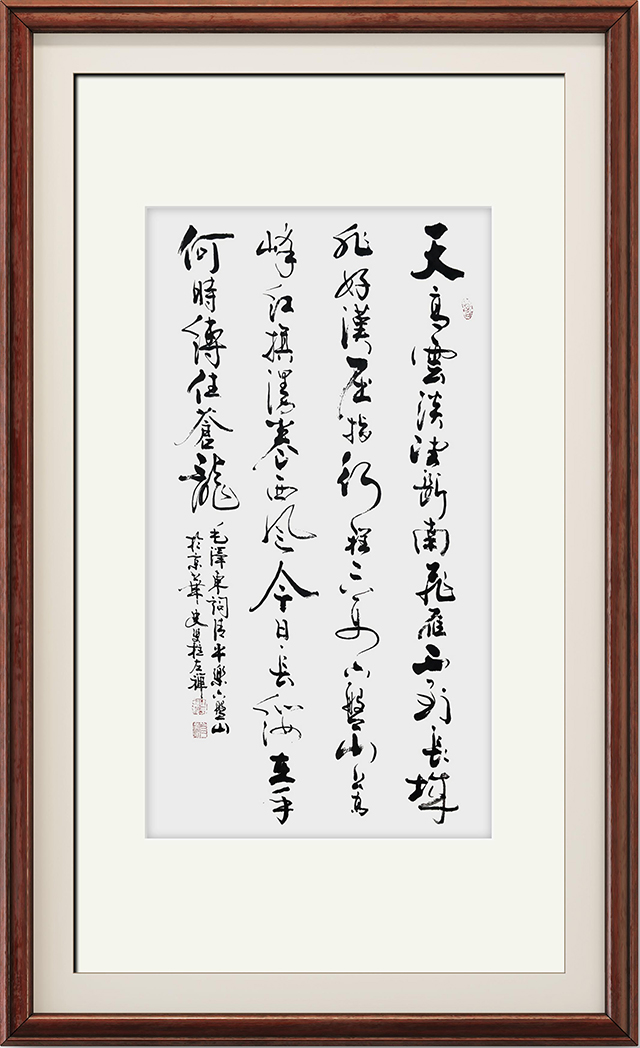 天高雲淡望斷南飛雁不到長城
非好漢屈指行程二万六盤山上高
峰紅旗漫卷西風今日長纓在手
何時縛住蒼龍
毛澤東詞清平樂六盤山
於京華史